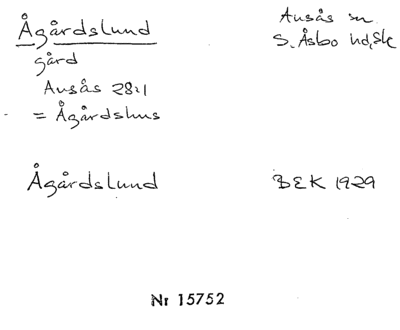 Ågårdslund
Ausås sn.
gård
S. Åsbo hd, Sk
Ausås 28:1
= Ågårdshus
Ågårdslund
BEK 1929
Nr 15752